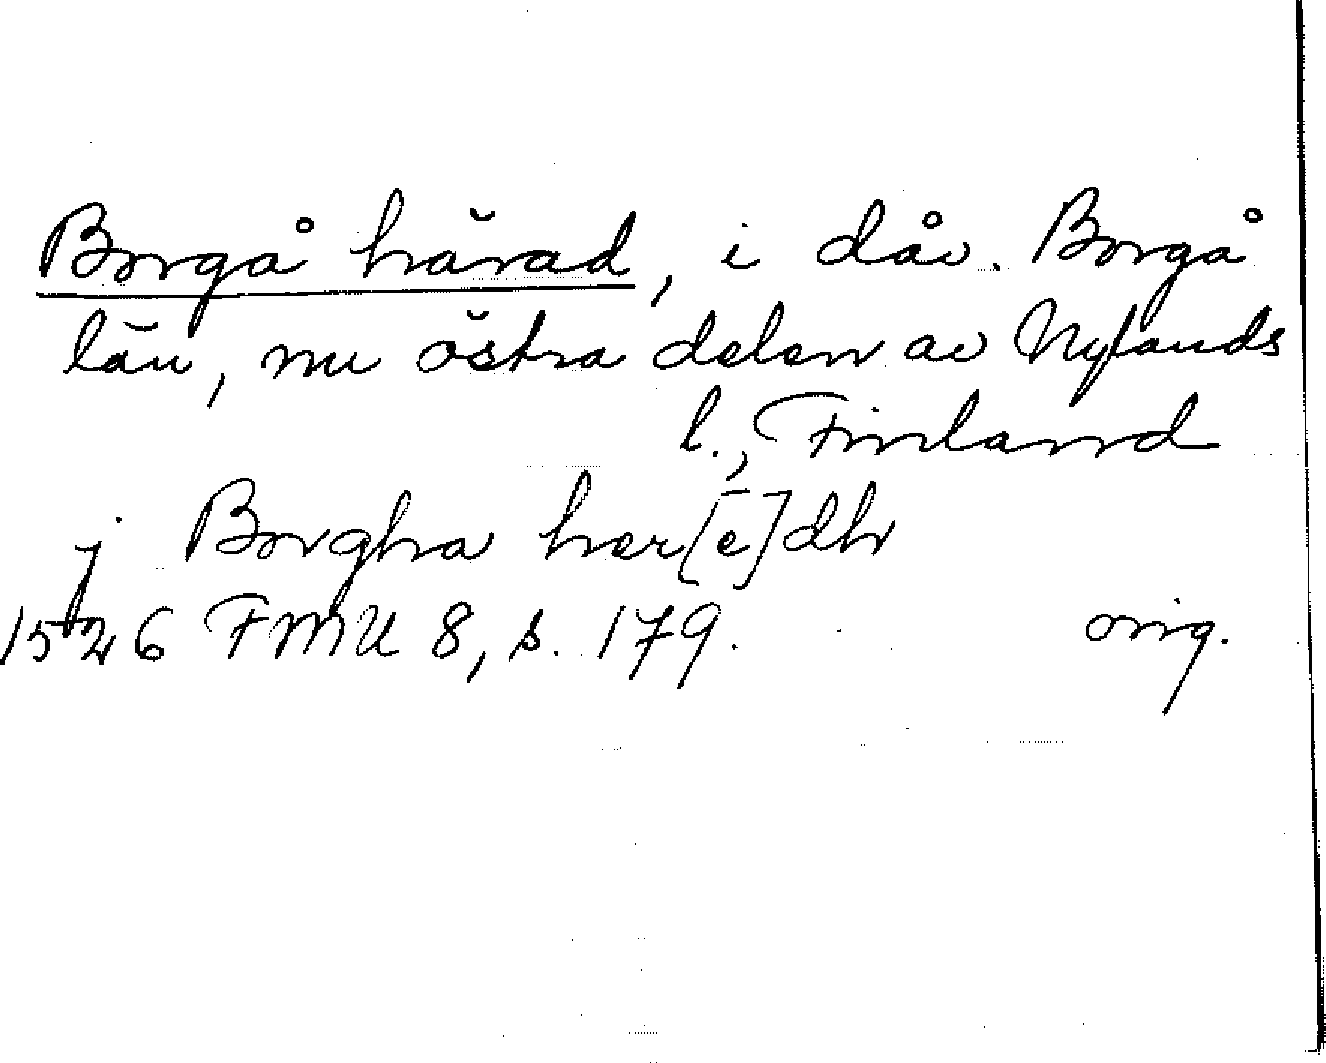 Borgå härad, i dåv. Borgå
län, nu östra delen av Nylands
l., Finland
j Borgha her[e]dh
1526 FMU 8, s. 179. orig.